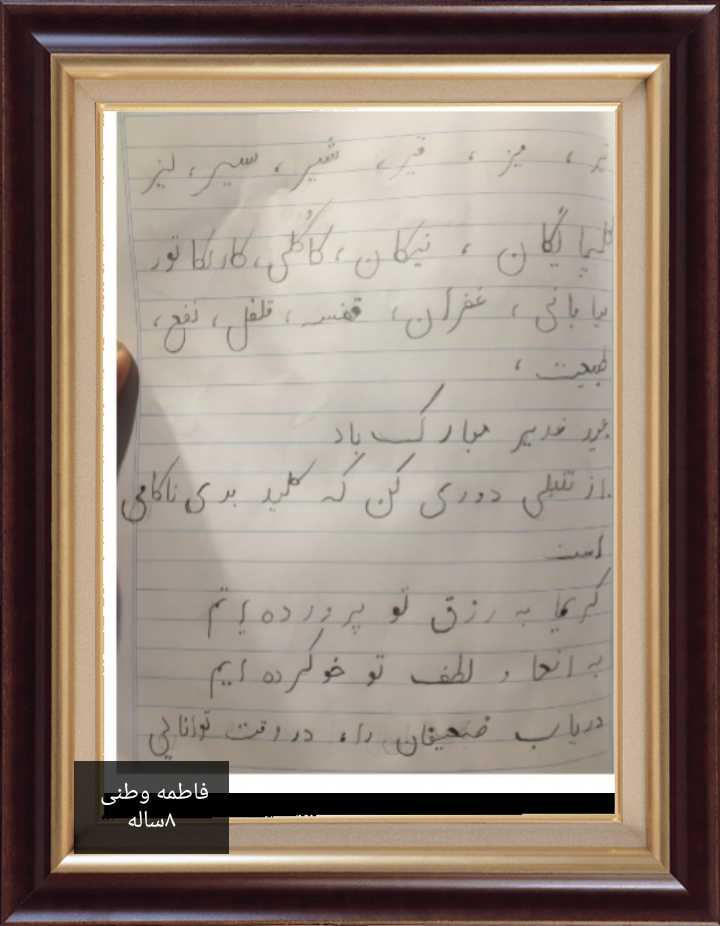 تر ، میز ، قیر ، شیر ، سیر ، لیز
گلپایگان ، نیکان ، کاگلی ، کاریکاتور
بیابانی ، غفران ، قفسه ، فلفل ، نفع ،
طبیعت ،
عید غدیر مبارک باد
از تنبلی دوری کن که کلید بدی ناکامی
است
کریما به رزق تو پرورده ایم
به انعا و لطف تو خو کرده ایم
دریاب ضعیفان را ، در وقت توانایی
فاطمه وطنی
۸ساله